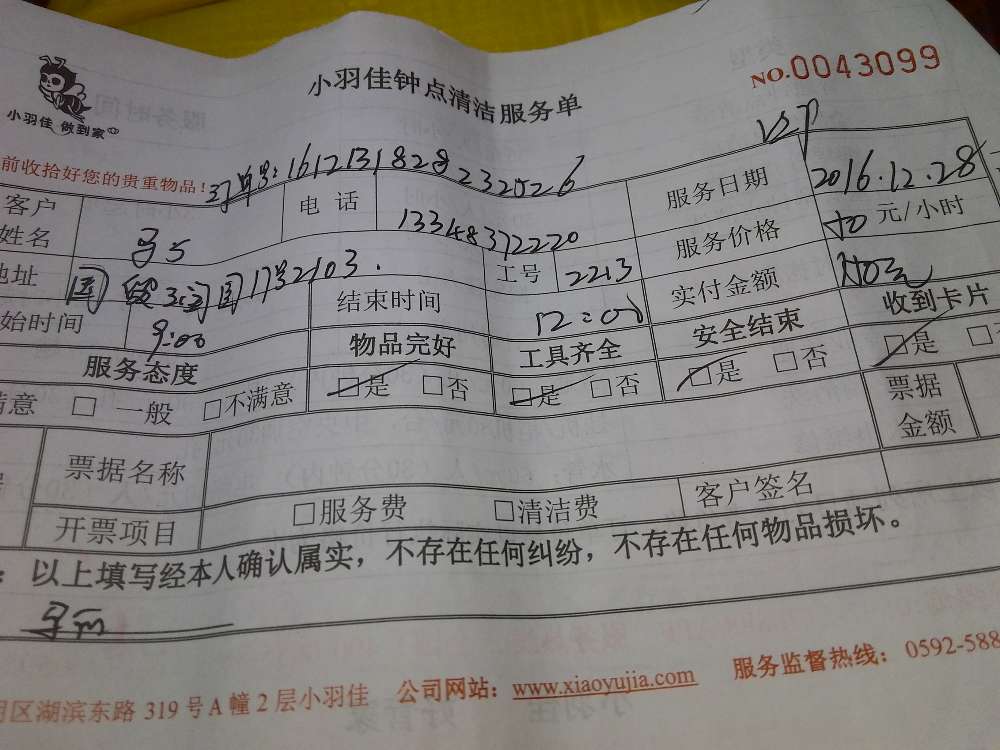 小羽佳钟点清洁服务单
NO.0043099
小羽佳 做到家
VIP
前收拾好您的贵重物品！
订单号：1612131828232026
客户姓名
电话 13348372220
服务日期 2016.12.28
地址 国贸 17号2103.
工号 2213
服务价格 元/小时
始时间 9:00
结束时间 12:00
实付金额
服务态度 物品完好 工具齐全 安全结束 收到卡片
满意 □ 一般 □不满意 □是 □否 □是 □否 □是 □否 □是 □
票据名称 票据金额
开票项目 □服务费 □清洁费 客户签名
：以上填写经本人确认属实，不存在任何纠纷，不存在任何物品损坏。
明区湖滨东路 319 号A 幢 2 层小羽佳 公司网站：www.xiaoyujia.com 服务监督热线：0592-588